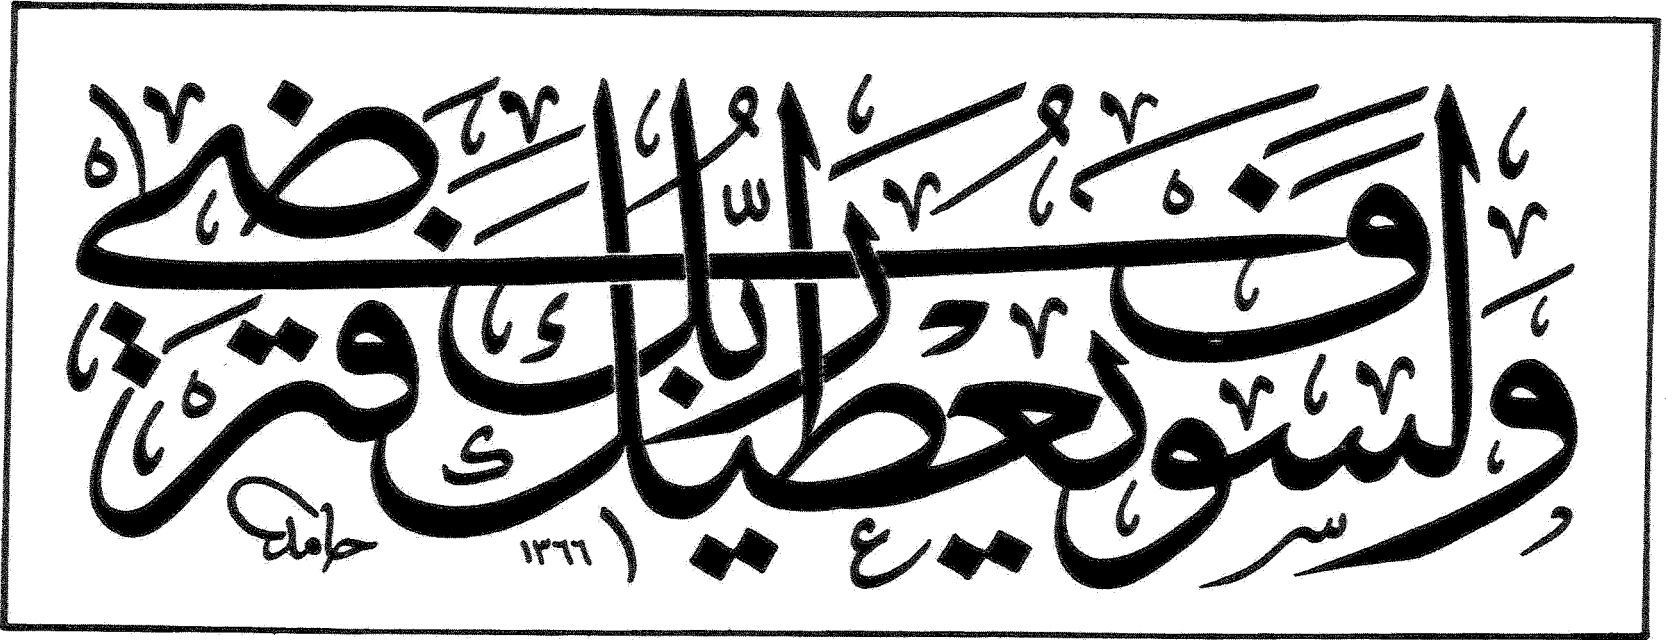 وَلَسَوْفَ يُعْطِيكَ رَبُّكَ فَتَرْضَىٰ
حامد ١٣٦٦